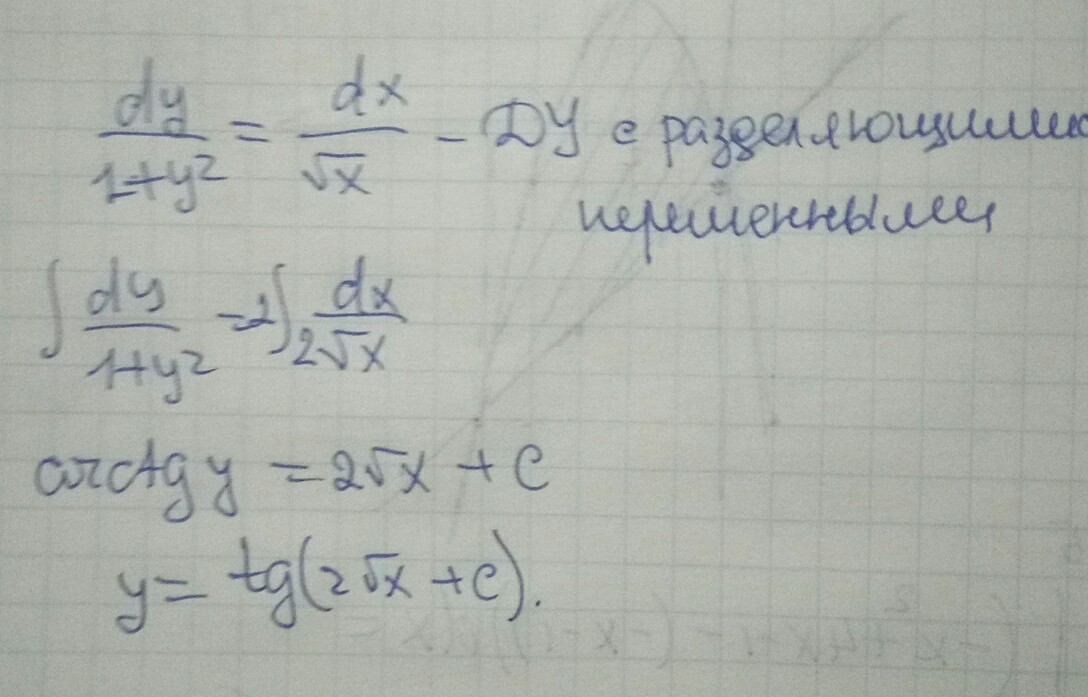 dy/1+y² = dx/√x - ДУ с разделяющимися
переменными
∫ dy/1+y² = 2∫ dx/2√x
arctg y = 2√x + C
y = tg(2√x + C).